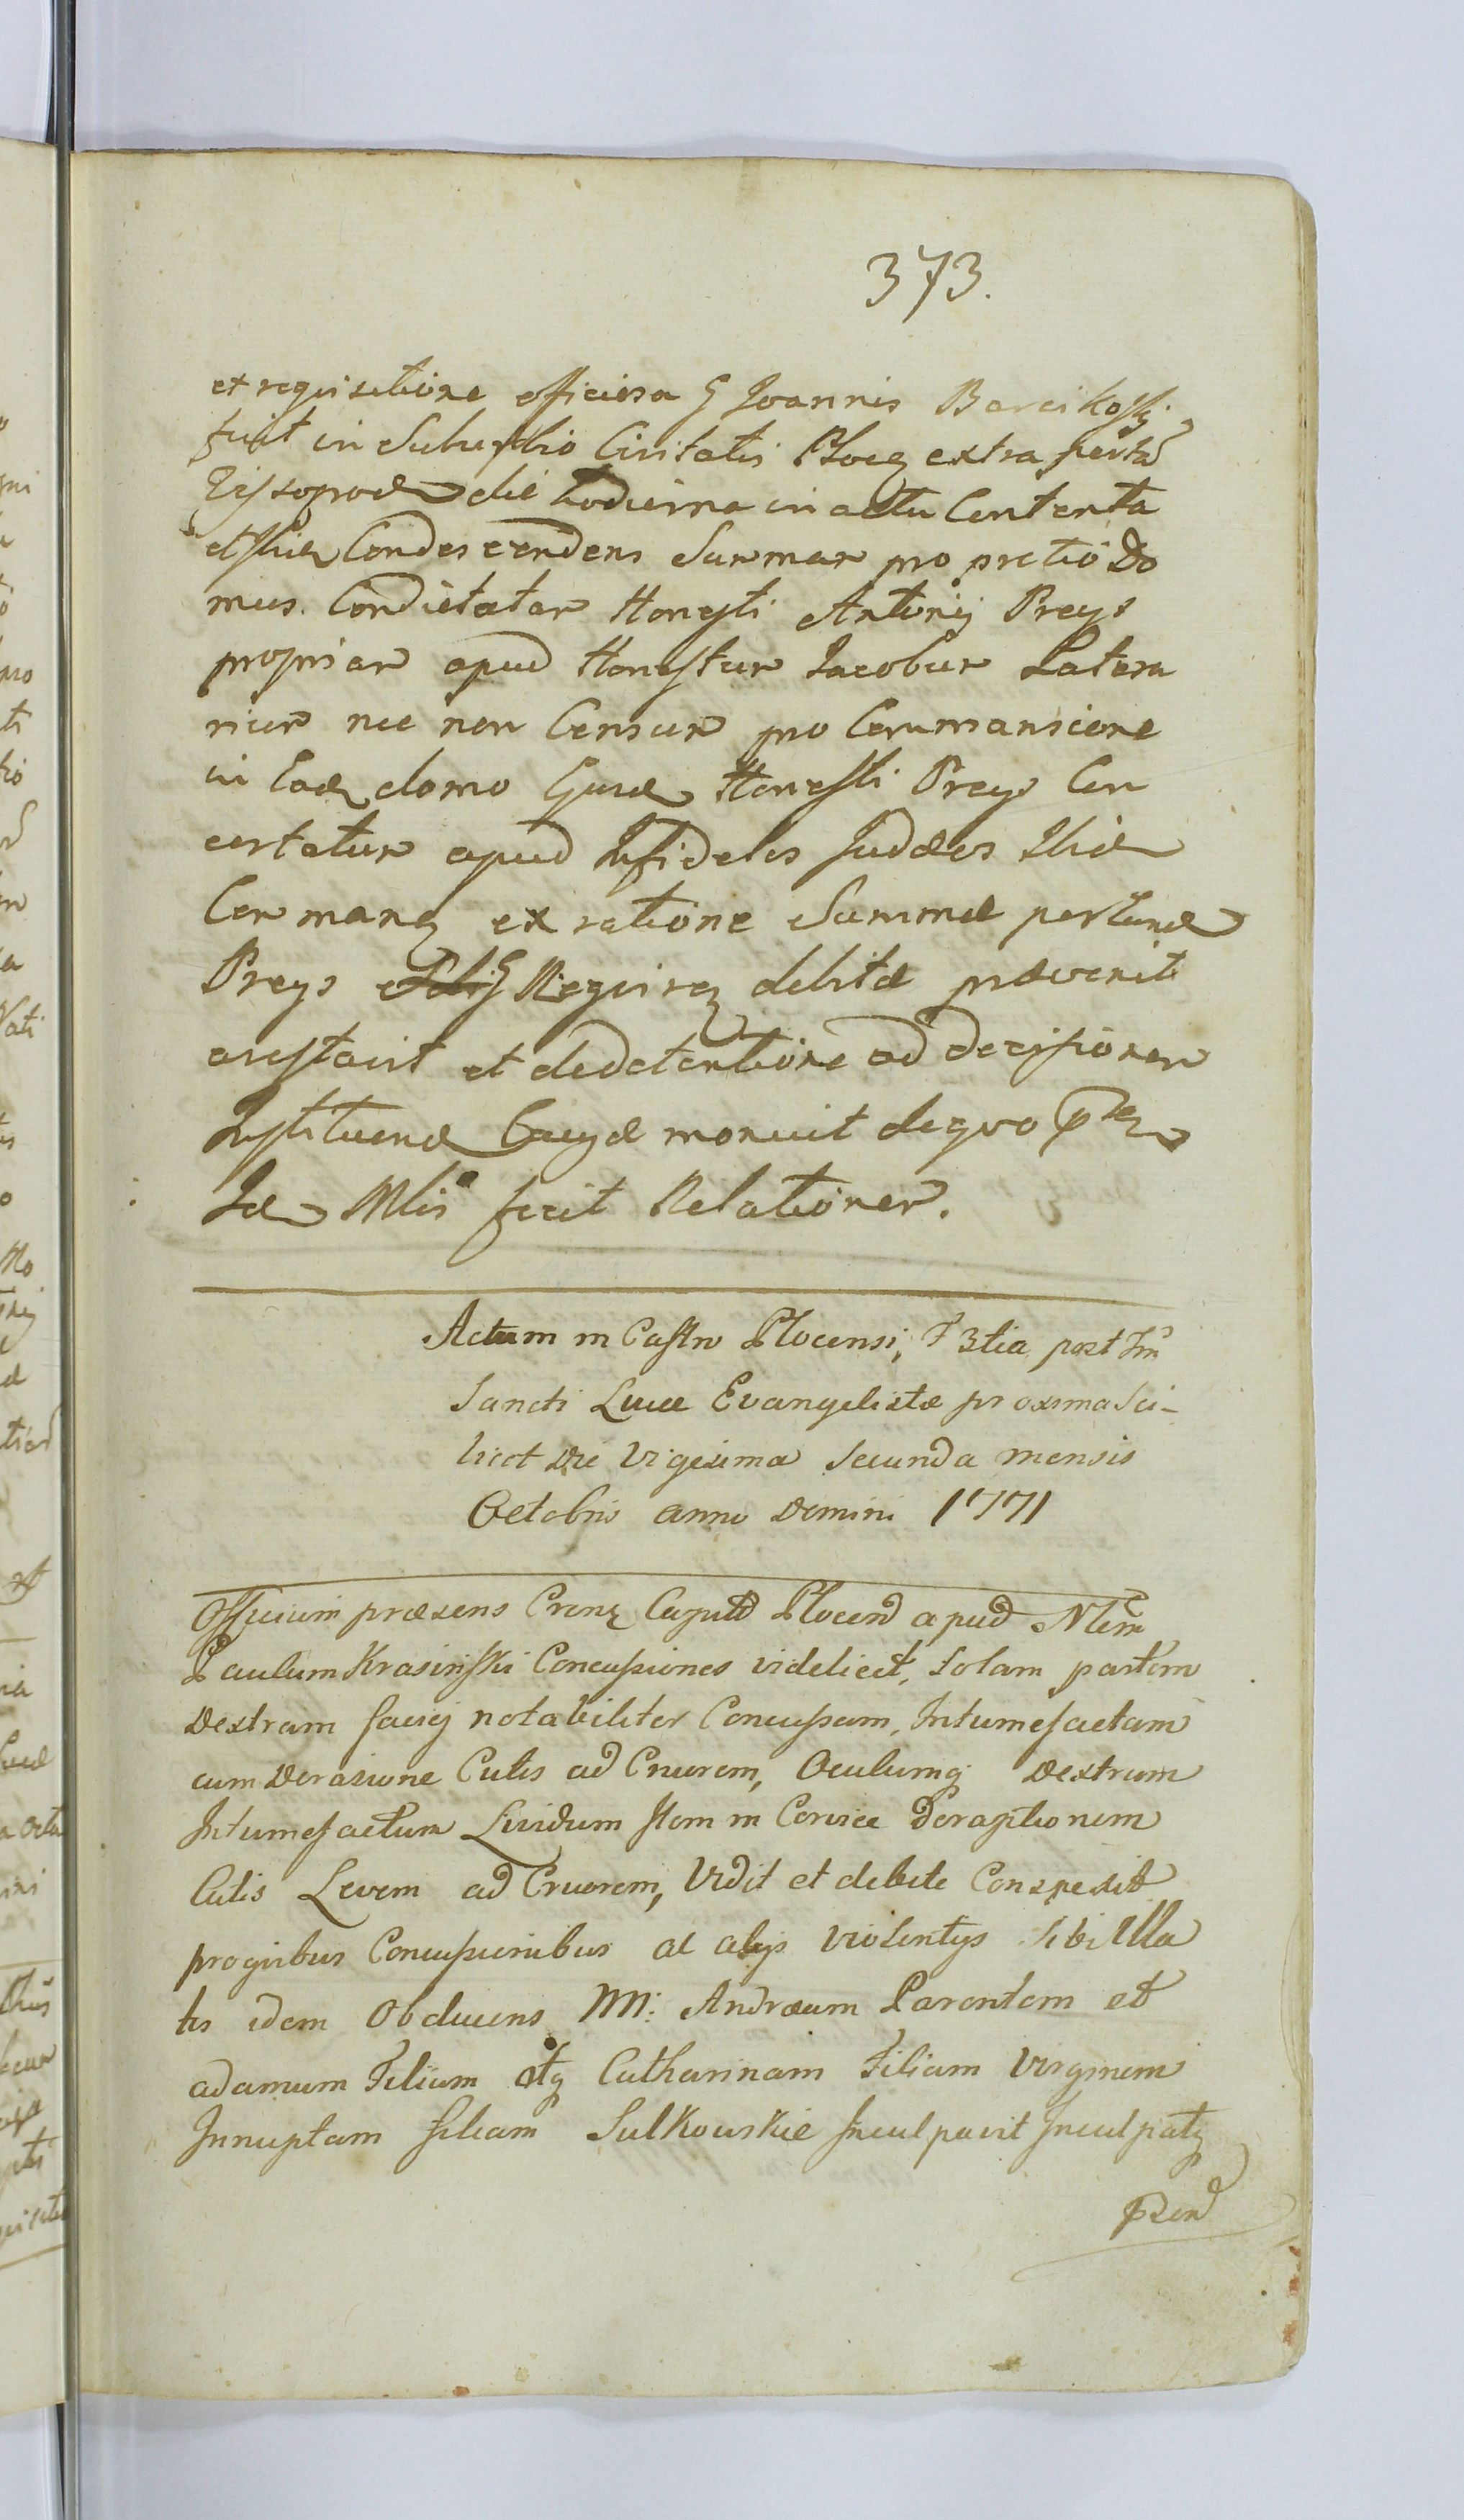 373.
et requisitione officiosa G Joannis Barcikosky
fuit in Suburbio Civitatis Plocen extra portã
die hodierna in actu Contenta
Condescendens Summam pro pretio Do
mus. Condictatam Honesti Antonij Preys
propriam apud Honestum Jacobum Latera
rium nec non Censum pro Commansione
in Ead domo Ejusd Honesti Preys Con
certatum apud Infideles Judæos Ibid
Comman ex ratione Summæ per
Preys Requiren debitæ prævenit
arestavit et de detentione ad decisionem
Instituend Causæ monuit de quo
Id Mlis fecit Relationem.
Actum in Castro Plocensi, F 3tia post Fm
Sancti Lucæ Evangelistæ proxima Sci-
licet Die Vigesima Secunda mensis
Octobris anno Domini 1771
Officium præsens Crense Capitld Plocend apud Nlem
Paulum Krasinski Concussiones videlicet, Solam partem
Dextram faciej notabiliter Concussam, Intumefactam
cum Derasione Cutis ad Cruorem, Oculumq Dextrum
Intumefactum Lividum Item in Cervice Deraptionem
Cutis Levem ad Cruorem, Vidit et debite Conspexit
proquibus Concussionibus ac alijs violentijs Sibi Illa
tis idem Obducens NN: Andræum Parentem et
adamum Filium atq Catharinam Filiam Virginem
Innuptam filiam Sulkowskie Inculpavit Inculpatq
Pzend